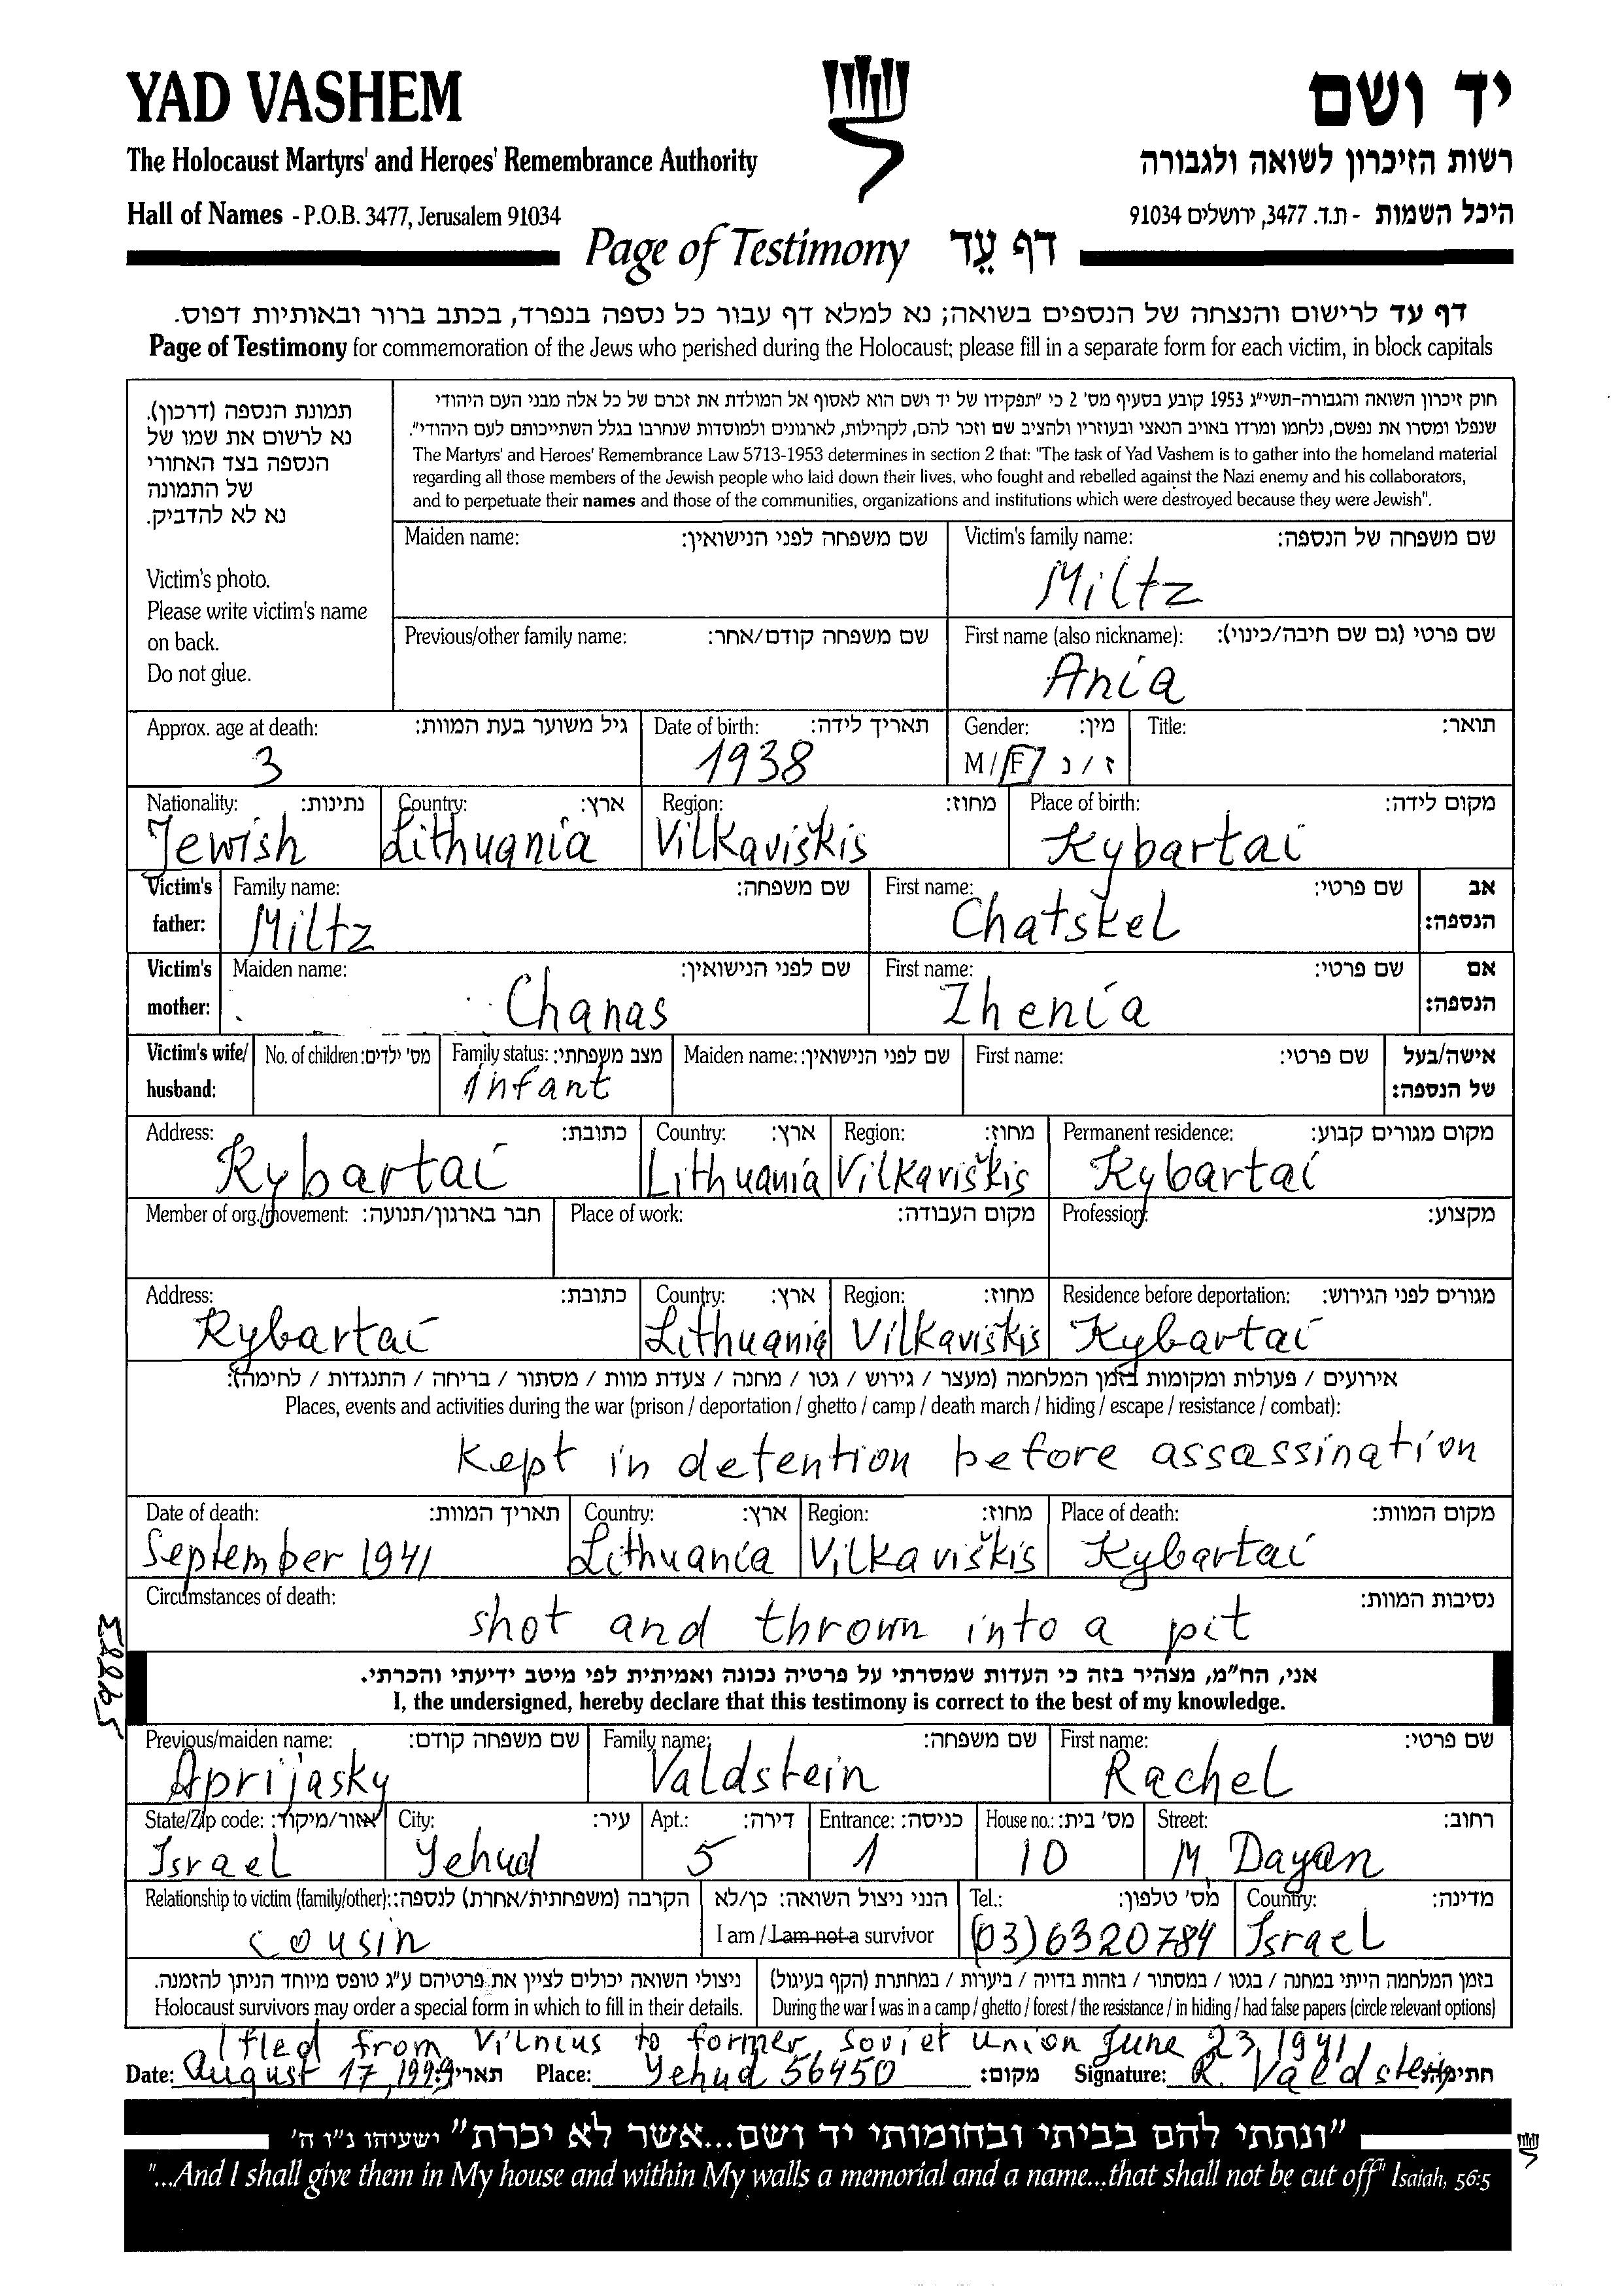 YAD VASHEM
יד ושם
The Holocaust Martyrs' and Heroes' Remembrance Authority
רשות הזיכרון לשואה ולגבורה
Hall of Names - P.O.B. 3477, Jerusalem 91034
היכל השמות - ת.ד. 3477, ירושלים 91034
Page of Testimony דף עֵד
דף עד לרישום והנצחה של הנספים בשואה; נא למלא דף עבור כל נספה בנפרד, בכתב ברור ובאותיות דפוס.
Page of Testimony for commemoration of the Jews who perished during the Holocaust; please fill in a separate form for each victim, in block capitals
תמונת הנספה (דרכון).
נא לרשום את שמו של
הנספה בצד האחורי
של התמונה
נא לא להדביק.
Victim's photo.
Please write victim's name
on back.
Do not glue.
חוק זיכרון השואה והגבורה-תשי״ג 1953 קובע בסעיף מס' 2 כי "תפקידו של יד ושם הוא לאסוף אל המולדת את זכרם של כל אלה מבני העם היהודי
שנפלו ומסרו את נפשם, נלחמו ומרדו באויב הנאצי ובעוזריו ולהציב שם וזכר להם, לקהילות, לארגונים ולמוסדות שנחרבו בגלל השתייכותם לעם היהודי".
The Martyrs' and Heroes' Remembrance Law 5713-1953 determines in section 2 that: "The task of Yad Vashem is to gather into the homeland material
regarding all those members of the Jewish people who laid down their lives, who fought and rebelled against the Nazi enemy and his collaborators,
and to perpetuate their names and those of the communities, organizations and institutions which were destroyed because they were Jewish".
Maiden name: שם משפחה לפני הנישואין:
Victim's family name: שם משפחה של הנספה:
Miltz
Previous/other family name: שם משפחה קודם/אחר:
First name (also nickname): שם פרטי (גם שם חיבה/כינוי):
Ania
Approx. age at death: גיל משוער בעת המוות:
3
Date of birth: תאריך לידה:
1938
Gender: מין:
M / F ז / נ
Title: תואר:
Nationality: נתינות:
Jewish
Country: ארץ:
Lithuania
Region: מחוז:
Vilkaviškis
Place of birth: מקום לידה:
Kybartai
Victim's father:
Family name: שם משפחה:
Miltz
First name: שם פרטי:
Chatskel
אב הנספה:
Victim's mother:
Maiden name: שם לפני הנישואין:
Chanas
First name: שם פרטי:
Zhenia
אם הנספה:
Victim's wife/ husband:
No. of children: מס' ילדים:
Family status: מצב משפחתי:
infant
Maiden name: שם לפני הנישואין:
First name: שם פרטי:
אישה/בעל של הנספה:
Address: כתובת:
Kybartai
Country: ארץ:
Lithuania
Region: מחוז:
Vilkaviškis
Permanent residence: מקום מגורים קבוע:
Kybartai
Member of org./movement: חבר בארגון/תנועה:
Place of work: מקום העבודה:
Profession: מקצוע:
Address: כתובת:
Kybartai
Country: ארץ:
Lithuania
Region: מחוז:
Vilkaviškis
Residence before deportation: מגורים לפני הגירוש:
Kybartai
אירועים / פעולות ומקומות בזמן המלחמה (מעצר / גירוש / גטו / מחנה / צעדת מוות / מסתור / בריחה / התנגדות / לחימה):
Places, events and activities during the war (prison / deportation / ghetto / camp / death march / hiding / escape / resistance / combat):
kept in detention before assassination
Date of death: תאריך המוות:
September 1941
Country: ארץ:
Lithuania
Region: מחוז:
Vilkaviškis
Place of death: מקום המוות:
Kybartai
Circumstances of death: נסיבות המוות:
shot and thrown into a pit
אני, הח״מ, מצהיר בזה כי העדות שמסרתי על פרטיה נכונה ואמיתית לפי מיטב ידיעתי והכרתי.
I, the undersigned, hereby declare that this testimony is correct to the best of my knowledge.
Previous/maiden name: שם משפחה קודם:
Aprijasky
Family name: שם משפחה:
Valdstein
First name: שם פרטי:
Rachel
State/Zip code: אזור/מיקוד:
Israel
City: עיר:
Yehud
Apt.: דירה:
5
Entrance: כניסה:
1
House no.: מס' בית:
10
Street: רחוב:
M. Dayan
Relationship to victim (family/other): הקרבה (משפחתית/אחרת) לנספה:
cousin
הנני ניצול השואה: כן/לא
I am / I am not a survivor
Tel.: מס' טלפון:
(03)6320784
Country: מדינה:
Israel
ניצולי השואה יכולים לציין את פרטיהם ע״ג טופס מיוחד הניתן להזמנה.
Holocaust survivors may order a special form in which to fill in their details.
בזמן המלחמה הייתי במחנה / בגטו / במסתור / בזהות בדויה / ביערות / במחתרת (הקף בעיגול)
During the war I was in a camp / ghetto / forest / the resistance / in hiding / had false papers (circle relevant options)
I fled from Vilnius to former Soviet Union June 23, 1941
Date: August 17, 1999 תאריך: Place: Yehud 56450 מקום: Signature: R. Valdstein חתימה:
"ונתתי להם בביתי ובחומותי יד ושם...אשר לא יכרת" ישעיהו נ״ו ה'
"...And I shall give them in My house and within My walls a memorial and a name...that shall not be cut off" Isaiah, 56:5